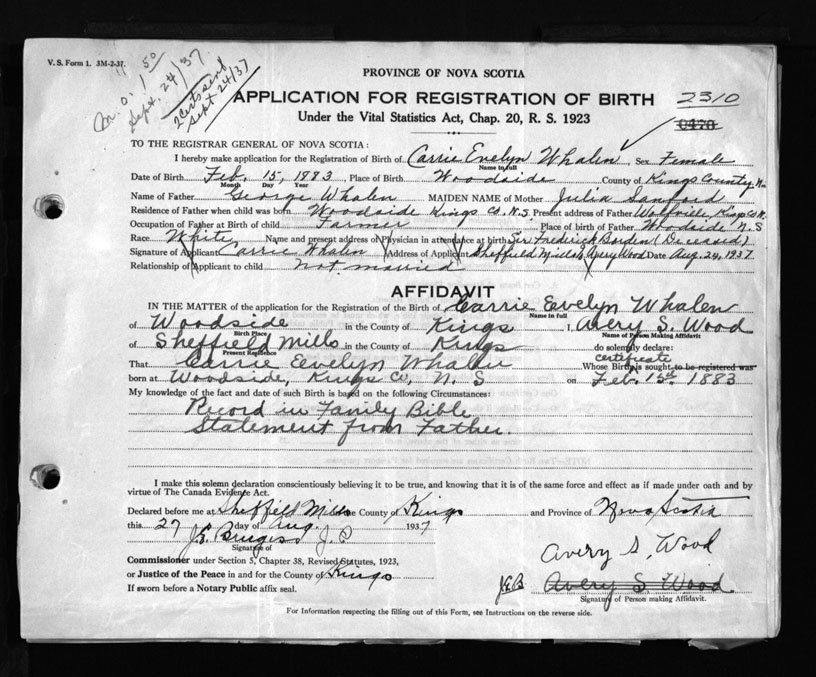 V. S. Form 1. 3M-2-37.
M. O. 1 50
Sept. 24/37
2 Certs send
Sept 24/37
PROVINCE OF NOVA SCOTIA
APPLICATION FOR REGISTRATION OF BIRTH 2310
Under the Vital Statistics Act, Chap. 20, R. S. 1923
TO THE REGISTRAR GENERAL OF NOVA SCOTIA:
I hereby make application for the Registration of Birth of Carrie Evelyn Whalen, Sex Female
Name in full
Date of Birth Feb. 15, 1883, Place of Birth Woodside County of Kings County, N.
Month Day Year
Name of Father George Whalen MAIDEN NAME of Mother Julia Sanford
Residence of Father when child was born Woodside Kings Co. N.S. Present address of Father Wolfville, Kings Co N.
Occupation of Father at Birth of child Farmer Place of birth of Father Woodside N.S
Race White Name and present address of Physician in attendance at birth Sir Frederick Borden (Deceased)
Signature of Applicant Carrie Whalen Address of Applicant Sheffield Mills Avery Wood Date Aug. 24, 1937
Relationship of Applicant to child not married
AFFIDAVIT
IN THE MATTER of the application for the Registration of the Birth of Carrie Evelyn Whalen
Name in full
of Woodside in the County of Kings I, Avery S. Wood
Birth Place Name of Person Making Affidavit
of Sheffield Mills in the County of Kings do solemnly declare:
Present Residence certificate
That Carrie Evelyn Whalen Whose Birth is sought to be registered was
born at Woodside, Kings Co, N. S on Feb. 15th 1883
My knowledge of the fact and date of such Birth is based on the following Circumstances:
Record in Family Bible
Statement from Father.
I make this solemn declaration conscientiously believing it to be true, and knowing that it is of the same force and effect as if made under oath and by
virtue of The Canada Evidence Act.
Declared before me at Sheffield Mills the County of Kings and Province of Nova Scotia
this 27 day of Aug. 1937
J.E. Burgess J. P
Signature of
Avery S. Wood
Commissioner under Section 5, Chapter 38, Revised Statutes, 1923,
or Justice of the Peace in and for the County of Kings
J.E.B Avery S Wood
If sworn before a Notary Public affix seal.
Signature of Person making Affidavit.
For Information respecting the filling out of this Form, see Instructions on the reverse side.